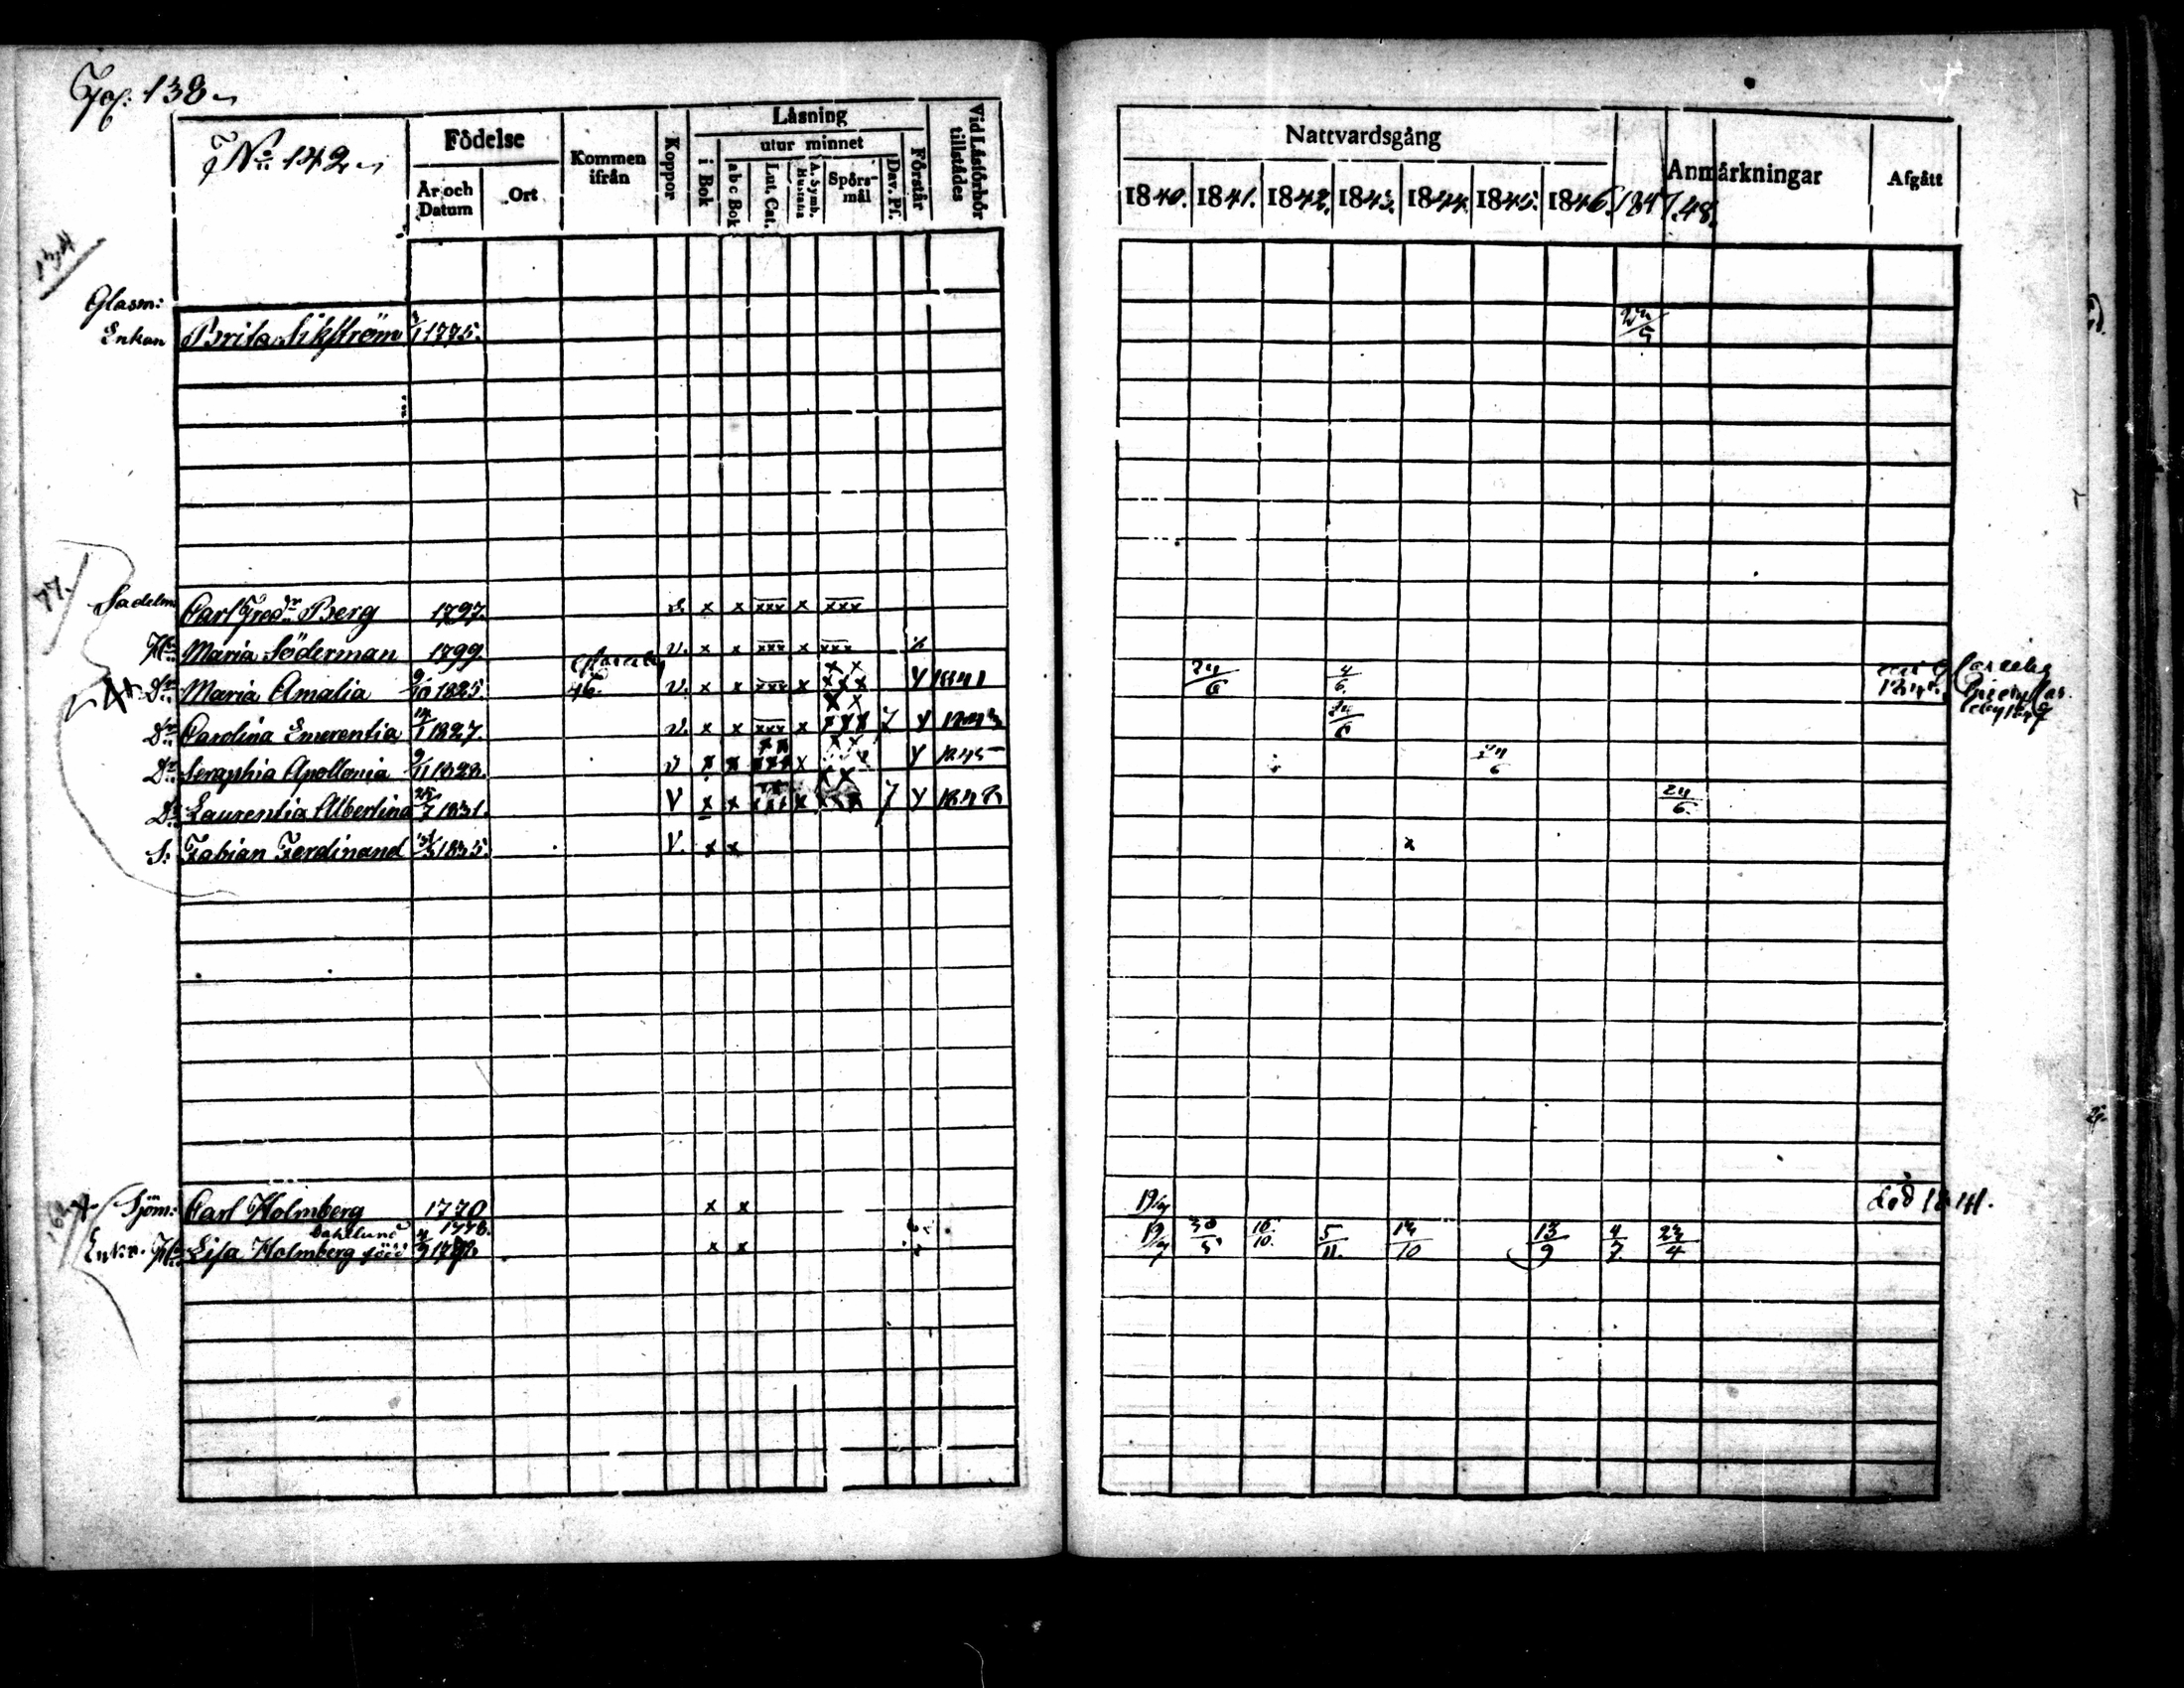 138
No 142
Födelse
År och Datum
Ort
Kommen ifrån
Koppor
Läsning
i Bok
utur minnet
abc Bok
Lut. Cat.
A. Symb. Hustafla
Spörs-mål
Dav. Ps.
Förstår
Vid Läsförhör tillstädes
Nattvardsgång
1840. 1841. 1842. 1843. 1844. 1845. 1846. 1847. 48.
Anmärkningar
Afgått
Glasm:
Enkan Brita Sikström 1775. 5
77.
Sadelm. Carl Fredr Berg 1797. x x xxx x xxx
Hu Maria Söderman 1799. v. x x xxx x xxx
Dr Maria Amalia 9/10 1825. 46. v. x x xxx x xxx y 1841 24/6 4/6
Dr Carolina Emerentia 1827. v. x x xxx x xxx 7 y 1843 24/6
Dr Seraphia Apollonia 9/11 1828. v x x xxx x y 1845 24/6
Dr Laurentia Albertina 25/7 1831. V x x xxx x xxx 7 y 1848 24/6
S. Fabian Ferdinand 1835. V. x x x
Sjöm: Carl Holmberg 1770 x x 19/7 död 1841.
Dahllund 1778.
Enka. Hu Lisa Holmberg född x x 19/7 30/5 16/10. 5/11. 10 13/9 4/7 23/4